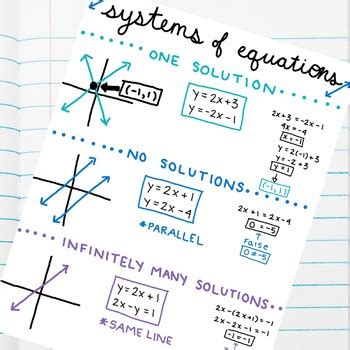 systems of equations
ONE SOLUTION
(-1,1)
y=2x+3
y=-2x-1
2x+3=-2x-1
4x=-4
x=-1
y=2(-1)+3
y=-2+3
y=1
(-1,1)
NO SOLUTIONS
y=2x+1
y=2x-4
*PARALLEL
2x+1=2x-4
0=-5
False
0≠-5
INFINITELY MANY SOLUTIONS
y=2x+1
2x-y=1
*SAME LINE
2x-(2x+1)=-1
2x-2x-1=-1
-1=-1